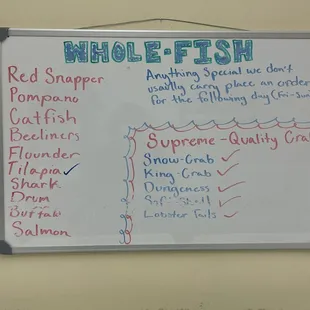 WHOLE-FISH
Red Snapper
Pompano
Catfish
Beeliners
Flounder
Tilapia ✓
Shark
Drum
Buffalo
Salmon
Anything Special we don't
usually carry place an order
for the following day (Fri-Sun
Supreme-Quality Crab
Snow-Crab ✓
King-Crab ✓
Dungeness ✓
Soft-Shell ✓
Lobster Tails ✓